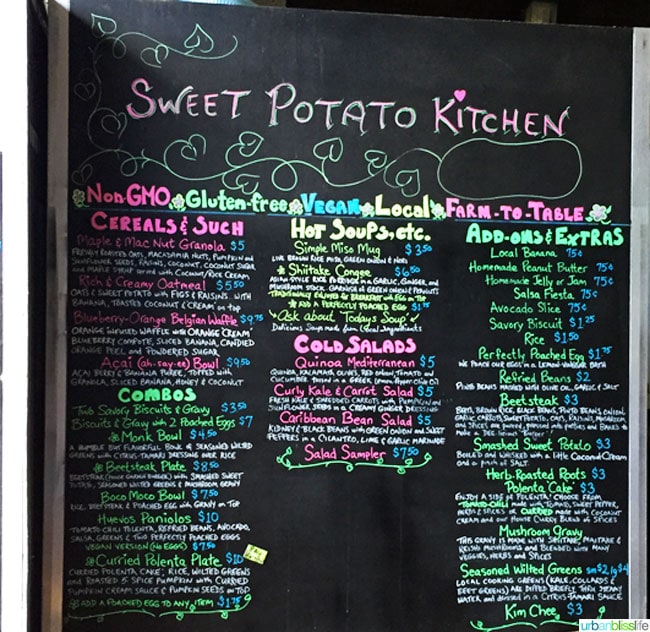 SWEET POTATO KITCHEN
Non-GMO Gluten-free Vegan Local Farm-to-Table
CEREALS & SUCH
Maple & Mac Nut Granola $5
SUNFLOWER SEEDS, RAISINS, COCONUT, COCONUT SUGAR
AND MAPLE SYRUP served with COCONUT/RICE CREAM
Rich & Creamy Oatmeal $5.50
OATS & SWEET POTATO with FIGS & RAISINS. WITH
BANANA, TOASTED COCONUT & CREAM on top
Blueberry-Orange Belgian Waffle $9.75
ORANGE INFUSED WAFFLE with ORANGE CREAM
BLUEBERRY COMPOTE, SLICED BANANA, CANDIED
ORANGE PEEL and POWDERED SUGAR
Açai (ah-say-ee) Bowl $9.50
AÇAI BERRY & BANANA PUREE, TOPPED WITH
GRANOLA, SLICED BANANA, HONEY & COCONUT
COMBOS
Two Savory Biscuits & Gravy $3.50
Biscuits & Gravy with 2 Poached Eggs $7
Monk Bowl $4.50
A HUMBLE BUT FLAVORFUL BOWL of SEASONED WILTED
GREENS with CITRUS-TAMARI DRESSING OVER RICE
Beetsteak Plate $8.50
with SMASHED SWEET
POTATO, SEASONED WILTED GREENS & MUSHROOM GRAVY
Boco Moco Bowl $7.50
RICE, BEETSTEAK & POACHED EGG with GRAVY on TOP
Huevos Paniolos $10
TOMATO-CHILI POLENTA, REFRIED BEANS, AVOCADO,
SALSA, GREENS & TWO PERFECTLY POACHED EGGS
VEGAN VERSION (No EGGS) $7.50
Curried Polenta Plate $10
CURRIED POLENTA CAKE, RICE, WILTED GREENS
and ROASTED 5 SPICE PUMPKIN with CURRIED
PUMPKIN CREAM SAUCE & PUMPKIN SEEDS on TOP
ADD A POACHED EGG TO ANY ITEM $1.75
HOT SOUPS, etc.
Simple Miso Mug $3.50
LIVE BROWN RICE MISO, GREEN ONION & NORI
Shiitake Congee $6.50
ASIAN-STYLE RICE PORRIDGE in a GARLIC, GINGER, and
MUSHROOM STOCK. GARNISHED w/ GREEN ONION & PEANUTS
TRADITIONALLY ENJOYED for BREAKFAST with EGG on TOP
ADD A PERFECTLY POACHED EGG $1.75
Ask about Today's Soup
Delicious Soups made from Local Ingredients
COLD SALADS
Quinoa Mediterranean $5
QUINOA, KALAMATA OLIVES, RED ONION, TOMATO and
CUCUMBER tossed in a GREEK Lemon-Pepper Olive Oil
Curly Kale & Carrot Salad $5
FRESH KALE & SHREDDED CARROTS with PUMPKIN and
SUNFLOWER SEEDS in a CREAMY GINGER DRESSING
Caribbean Bean Salad $5
KIDNEY & BLACK BEANS with GREEN ONION and SWEET
PEPPERS in a CILANTRO, LIME & GARLIC MARINADE
Salad Sampler $7.50
ADD-ONS & EXTRAS
Local Banana 75¢
Homemade Peanut Butter 75¢
Homemade Jelly or Jam 75¢
Salsa Fiesta 75¢
Avocado Slice 75¢
Savory Biscuit $1.25
Rice $1.50
Perfectly Poached Egg $1.75
WE POACH OUR EGGS in a LEMON-VINEGAR BATH
Refried Beans $2
PINTO BEANS MASHED with OLIVE OIL, GARLIC & SALT
Beetsteak $3
BEETS, BROWN RICE, BLACK BEANS, PINTO BEANS, ONION
GARLIC, CARROTS, SWEET POTATO, OATS, RAISINS, MUSHROOM
and SPICES
Smashed Sweet Potato $3
BOILED and WHISKED with a little Coconut Cream
and a pinch of SALT
Herb-Roasted Roots $3
Polenta Cake $3
ENJOY A SIDE of POLENTA! CHOOSE FROM
TOMATO-CHILI made with TOMATO, SWEET PEPPER,
HERBS & SPICES or CURRIED made with COCONUT
CREAM and our HOUSE CURRY BLEND of SPICES
Mushroom Gravy
THIS GRAVY IS MADE WITH SHIITAKE, MAITAKE &
REISHI MUSHROOMS and BLENDED WITH MANY
VEGGIES, HERBS and SPICES
Seasoned Wilted Greens sm $2, lg $4
LOCAL COOKING GREENS (KALE, COLLARDS &
BEET GREENS) ARE DIPPED BRIEFLY THEN STEAMY
WATER and dressed in a CITRUS-TAMARI SAUCE
Kim Chee $3
urbanblisslife